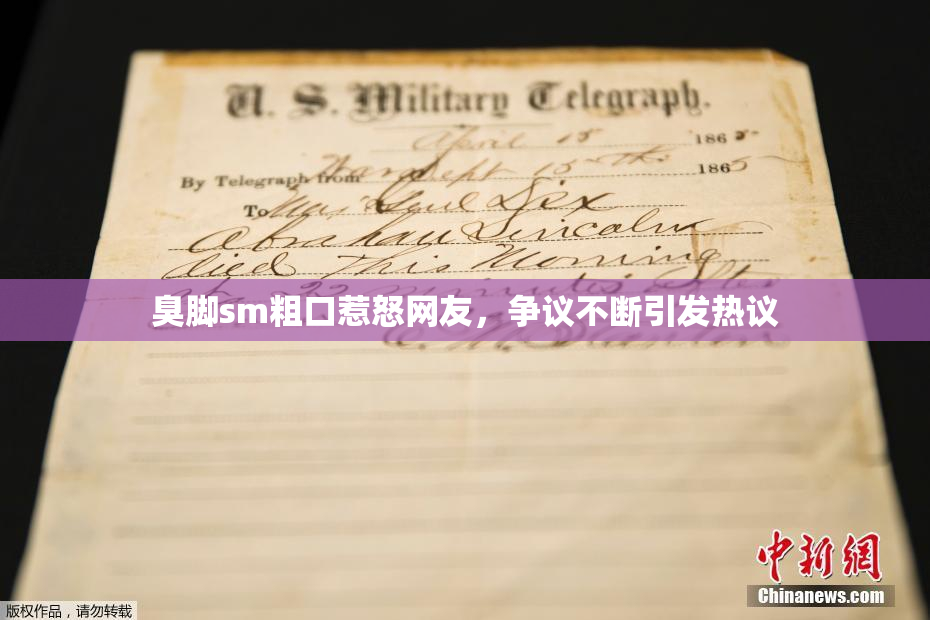 U. S. Military Telegraph.
April 15 1865
By Telegraph from War Dept 15th 1865
To Maj Genl Dix
Abraham Lincoln
died This Morning
at 22 minutes After
臭脚sm粗口惹怒网友，争议不断引发热议
E. M. Stanton
中新网
Chinanews.com
版权作品，请勿转载